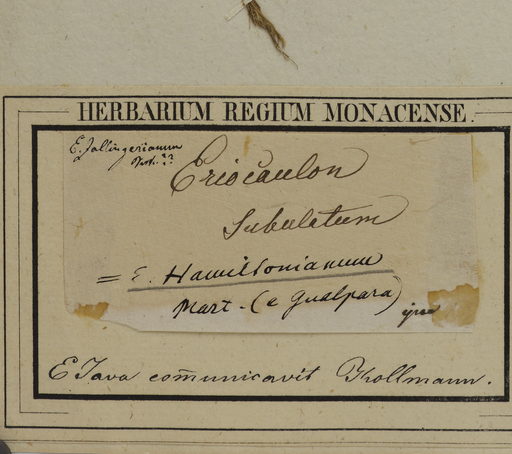 HERBARIUM REGIUM MONACENSE.
E. Zollingerianum
Eriocaulon
Subulatum
= E. Hamiltonianum
Mart. (e Gualpara)
E Java com̄unicavit Kollmann.